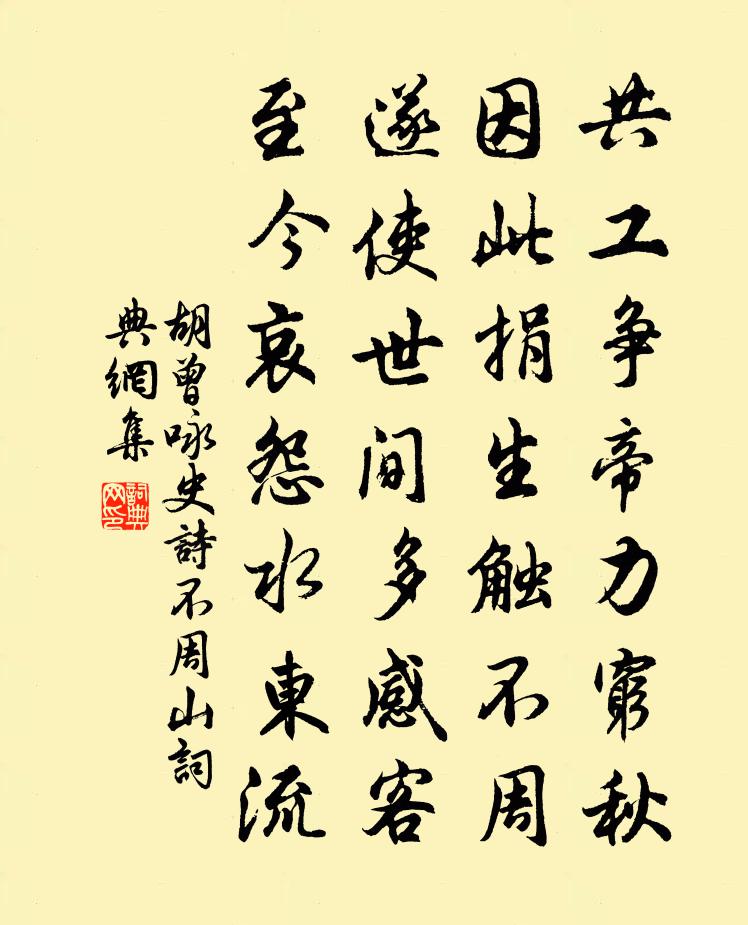 共工争帝力穷秋
因此捐生触不周
遂使世间多感客
至今哀怨水東流
胡曾咏史詩不周山詞
典網集
詞典网印